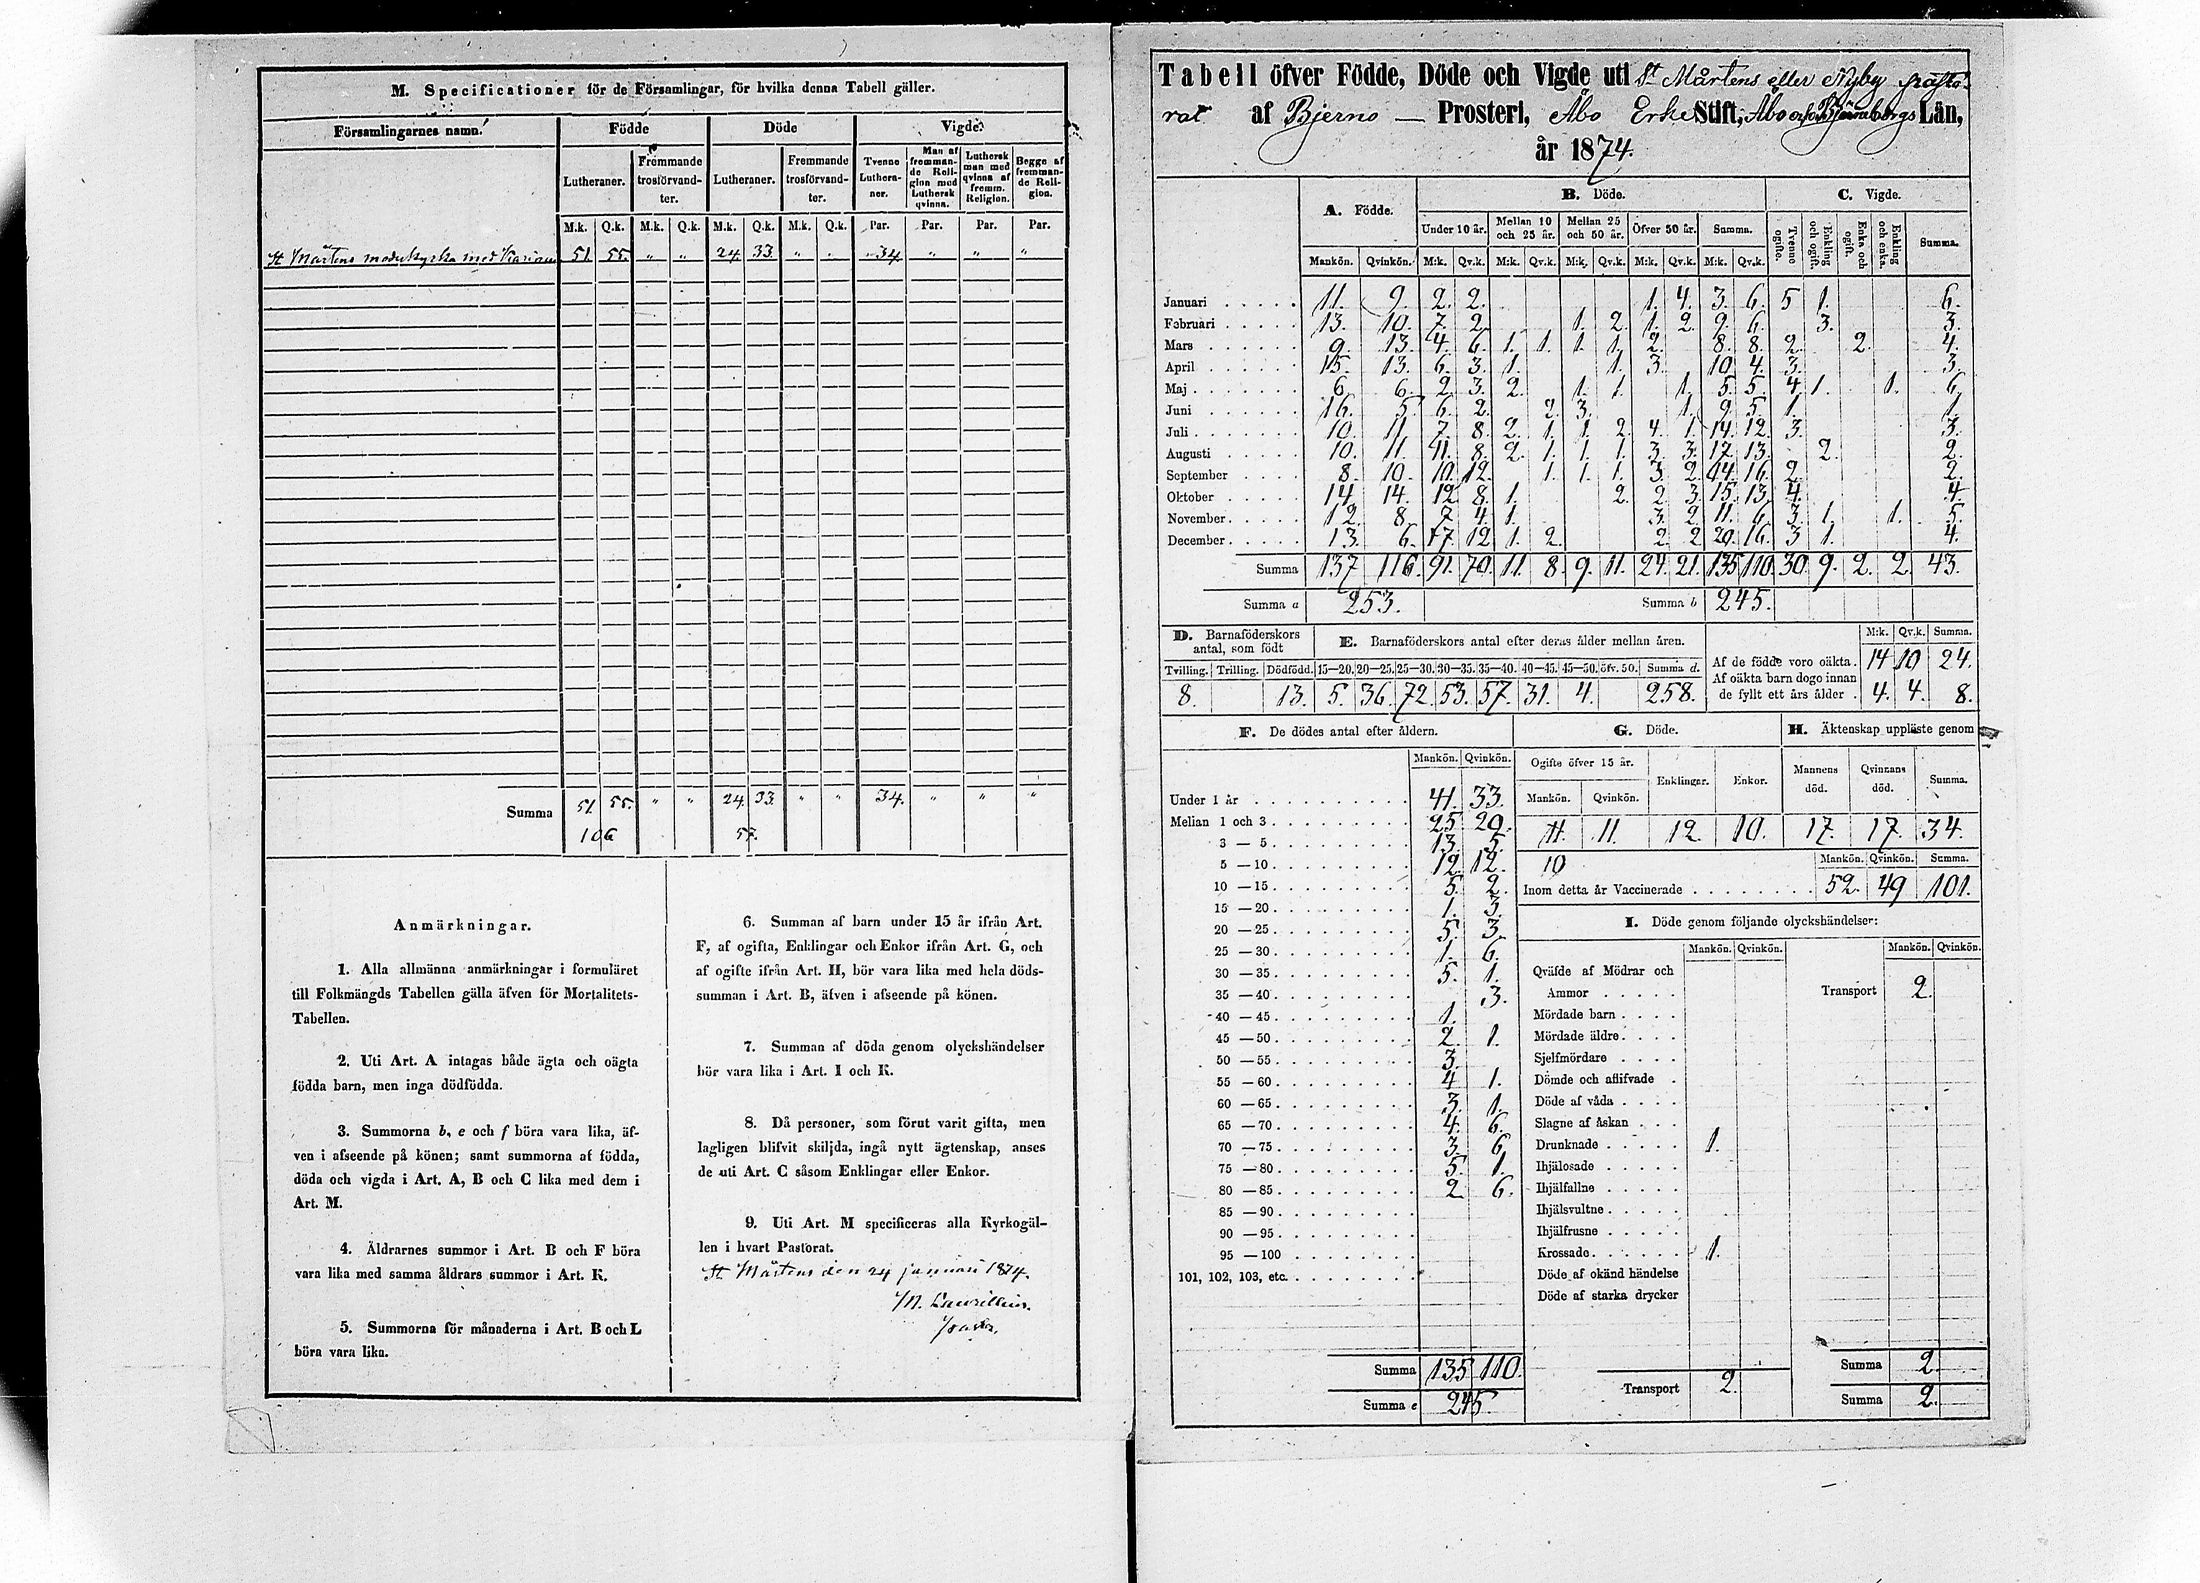 M. Specificationer för de Församlingar, för hvilka denna Tabell gäller.
Församlingarnes namn. Födde Döde Vigde.
Lutheraner. Fremmande trosförvandter. Lutheraner. Fremmande trosförvandter. Tvenne Lutheraner. Man af fremmande Religion med Luthersk qvinna. Luthersk man med qvinna af fremm. Religion. Begge af fremmande Religion.
M.k. Q.k. M.k. Q.k. M.k. Q.k. M.k. Q.k. Par. Par. Par. Par.
St Mårtens moderkyrka med 51 55. " " 24 33. " " 34. " " "
Summa 51. 55. " " 24. 33. " " 34. " " "
106 57.
Anmärkningar.
1. Alla allmänna anmärkningar i formuläret
till Folkmängds Tabellen gälla äfven för Mortalitets-
Tabellen.
2. Uti Art. A intagas både ägta och oägta
födda barn, men inga dödfödda.
3. Summorna b, e och f böra vara lika, äf-
ven i afseende på könen; samt summorna af födda,
döda och vigda i Art. A, B och C lika med dem i
Art. M.
4. Äldrarnes summor i Art. B och F böra
vara lika med samma åldrars summor i Art. K.
5. Summorna för månaderna i Art. B och L
böra vara lika.
6. Summan af barn under 15 år ifrån Art.
F, af ogifta, Enklingar och Enkor ifrån Art. G, och
af ogifte ifrån Art. H, bör vara lika med hela döds-
summan i Art. B, äfven i afseende på könen.
7. Summan af döda genom olyckshändelser
bör vara lika i Art. I och K.
8. Då personer, som förut varit gifta, men
lagligen blifvit skiljda, ingå nytt ägtenskap, anses
de uti Art. C såsom Enklingar eller Enkor.
9. Uti Art. M specificeras alla Kyrkogäl-
len i hvart Pastorat.
St Mårtens den 24 januari 1874.
Tabell öfver Födde, Döde och Vigde uti St Mårtens eller Nyby Pasto-
rat af Bjerno — Prosteri, Åbo Erke Stift, Åbo och Björneborgs Län,
år 1874.
A. Födde. B. Döde. C. Vigde.
Under 10 år. Mellan 10 och 25 år. Mellan 25 och 50 år. Öfver 50 år. Summa. Tvenne ogifte. Enkling och ogift. Enka och ogift. Enkling och enka. Summa.
Mankön. Qvinkön. M:k. Qv.k. M:k. Qv.k. M:k. Qv.k. M:k. Qv.k. M:k. Qv.k.
Januari 11. 9. 2. 2. 1. 4. 3. 6. 5 1. 6.
Februari 13. 10. 7. 2. 1. 2. 1. 2. 9. 6. 3. 3.
Mars 9. 13. 4. 6. 1. 1. 1. 1. 2. 8. 8. 2. 2. 4.
April 15. 13. 6. 3. 1. 1. 3. 10 4. 3. 3.
Maj 6. 6. 2. 3. 2. 1. 1. 1. 5. 5. 4. 1. 1. 6.
Juni 16. 5. 6. 2. 2. 3. 1. 9. 5. 1. 1.
Juli 10. 11. 7. 8. 2. 1. 1. 2. 4. 1. 14. 12. 3. 3.
Augusti 10. 11. 11. 8. 2. 1. 1. 1. 3. 3. 17. 13. 2. 2.
September 8. 10. 10. 12. 1. 1. 1. 3. 2. 14. 16. 2. 2.
Oktober 14. 14. 12 8. 1. 2. 2. 3. 15. 13. 4. 4.
November 12. 8. 7 4. 1. 3. 2. 11. 6. 3. 1. 1. 5.
December 13. 6. 17. 12 1. 2. 2 2 20. 16. 3 1. 4.
Summa 137 116. 91. 70. 11. 8. 9. 11. 24. 21. 135 110. 30. 9. 2. 2. 43.
Summa a 253. Summa b 245.
D. Barnaföderskors antal, som födt
Tvilling. Trilling. Dödfödd.
8. 13.
E. Barnaföderskors antal efter deras ålder mellan åren.
15—20. 20—25. 25—30. 30—35. 35—40. 40—45. 45—50. öfv. 50. Summa d.
5. 36. 72. 53. 57. 31. 4. 258.
M:k. Qv.k. Summa.
Af de födde voro oäkta. 14 10 24.
Af oäkta barn dogo innan
de fyllt ett års ålder. 4. 4. 8.
F. De dödes antal efter åldern.
Mankön. Qvinkön.
Under 1 år 41. 33.
Mellan 1 och 3 25 20.
3 — 5 13. 5.
5 — 10 12. 12.
10 — 15 5. 2.
15 — 20 1. 3.
20 — 25 5. 3.
25 — 30 1. 6.
30 — 35 5. 1.
35 — 40 3.
40 — 45 1.
45 — 50 2. 1.
50 — 55 3.
55 — 60 4 1.
60 — 65 3. 1.
65 — 70 4. 6.
70 — 75 3. 6.
75 — 80 5. 1.
80 — 85 2 6.
85 — 90
90 — 95
95 — 100
101, 102, 103, etc.
Summa 135 110.
Summa e 245.
G. Döde.
Ogifte öfver 15 år. Enklingar. Enkor.
Mankön. Qvinkön.
11. 11. 12. 10.
10
H. Äktenskap upplöste genom
Mannens död. Qvinnans död. Summa.
17. 17. 34.
Mankön. Qvinkön. Summa.
Inom detta år Vaccinerade 52. 49 101.
I. Döde genom följande olyckshändelser:
Mankön. Qvinkön. Mankön. Qvinkön.
Qväfde af Mödrar och
Ammor
Mördade barn
Mördade äldre
Sjelfmördare
Dömde och aflifvade
Döde af våda
Slagne af åskan
Drunknade 1.
Ihjälosade
Ihjälfallne
Ihjälsvultne
Ihjälfrusne
Krossade 1.
Döde af okänd händelse
Döde af starka drycker
Transport 2.
Transport 2.
Summa 2.
Summa 2.